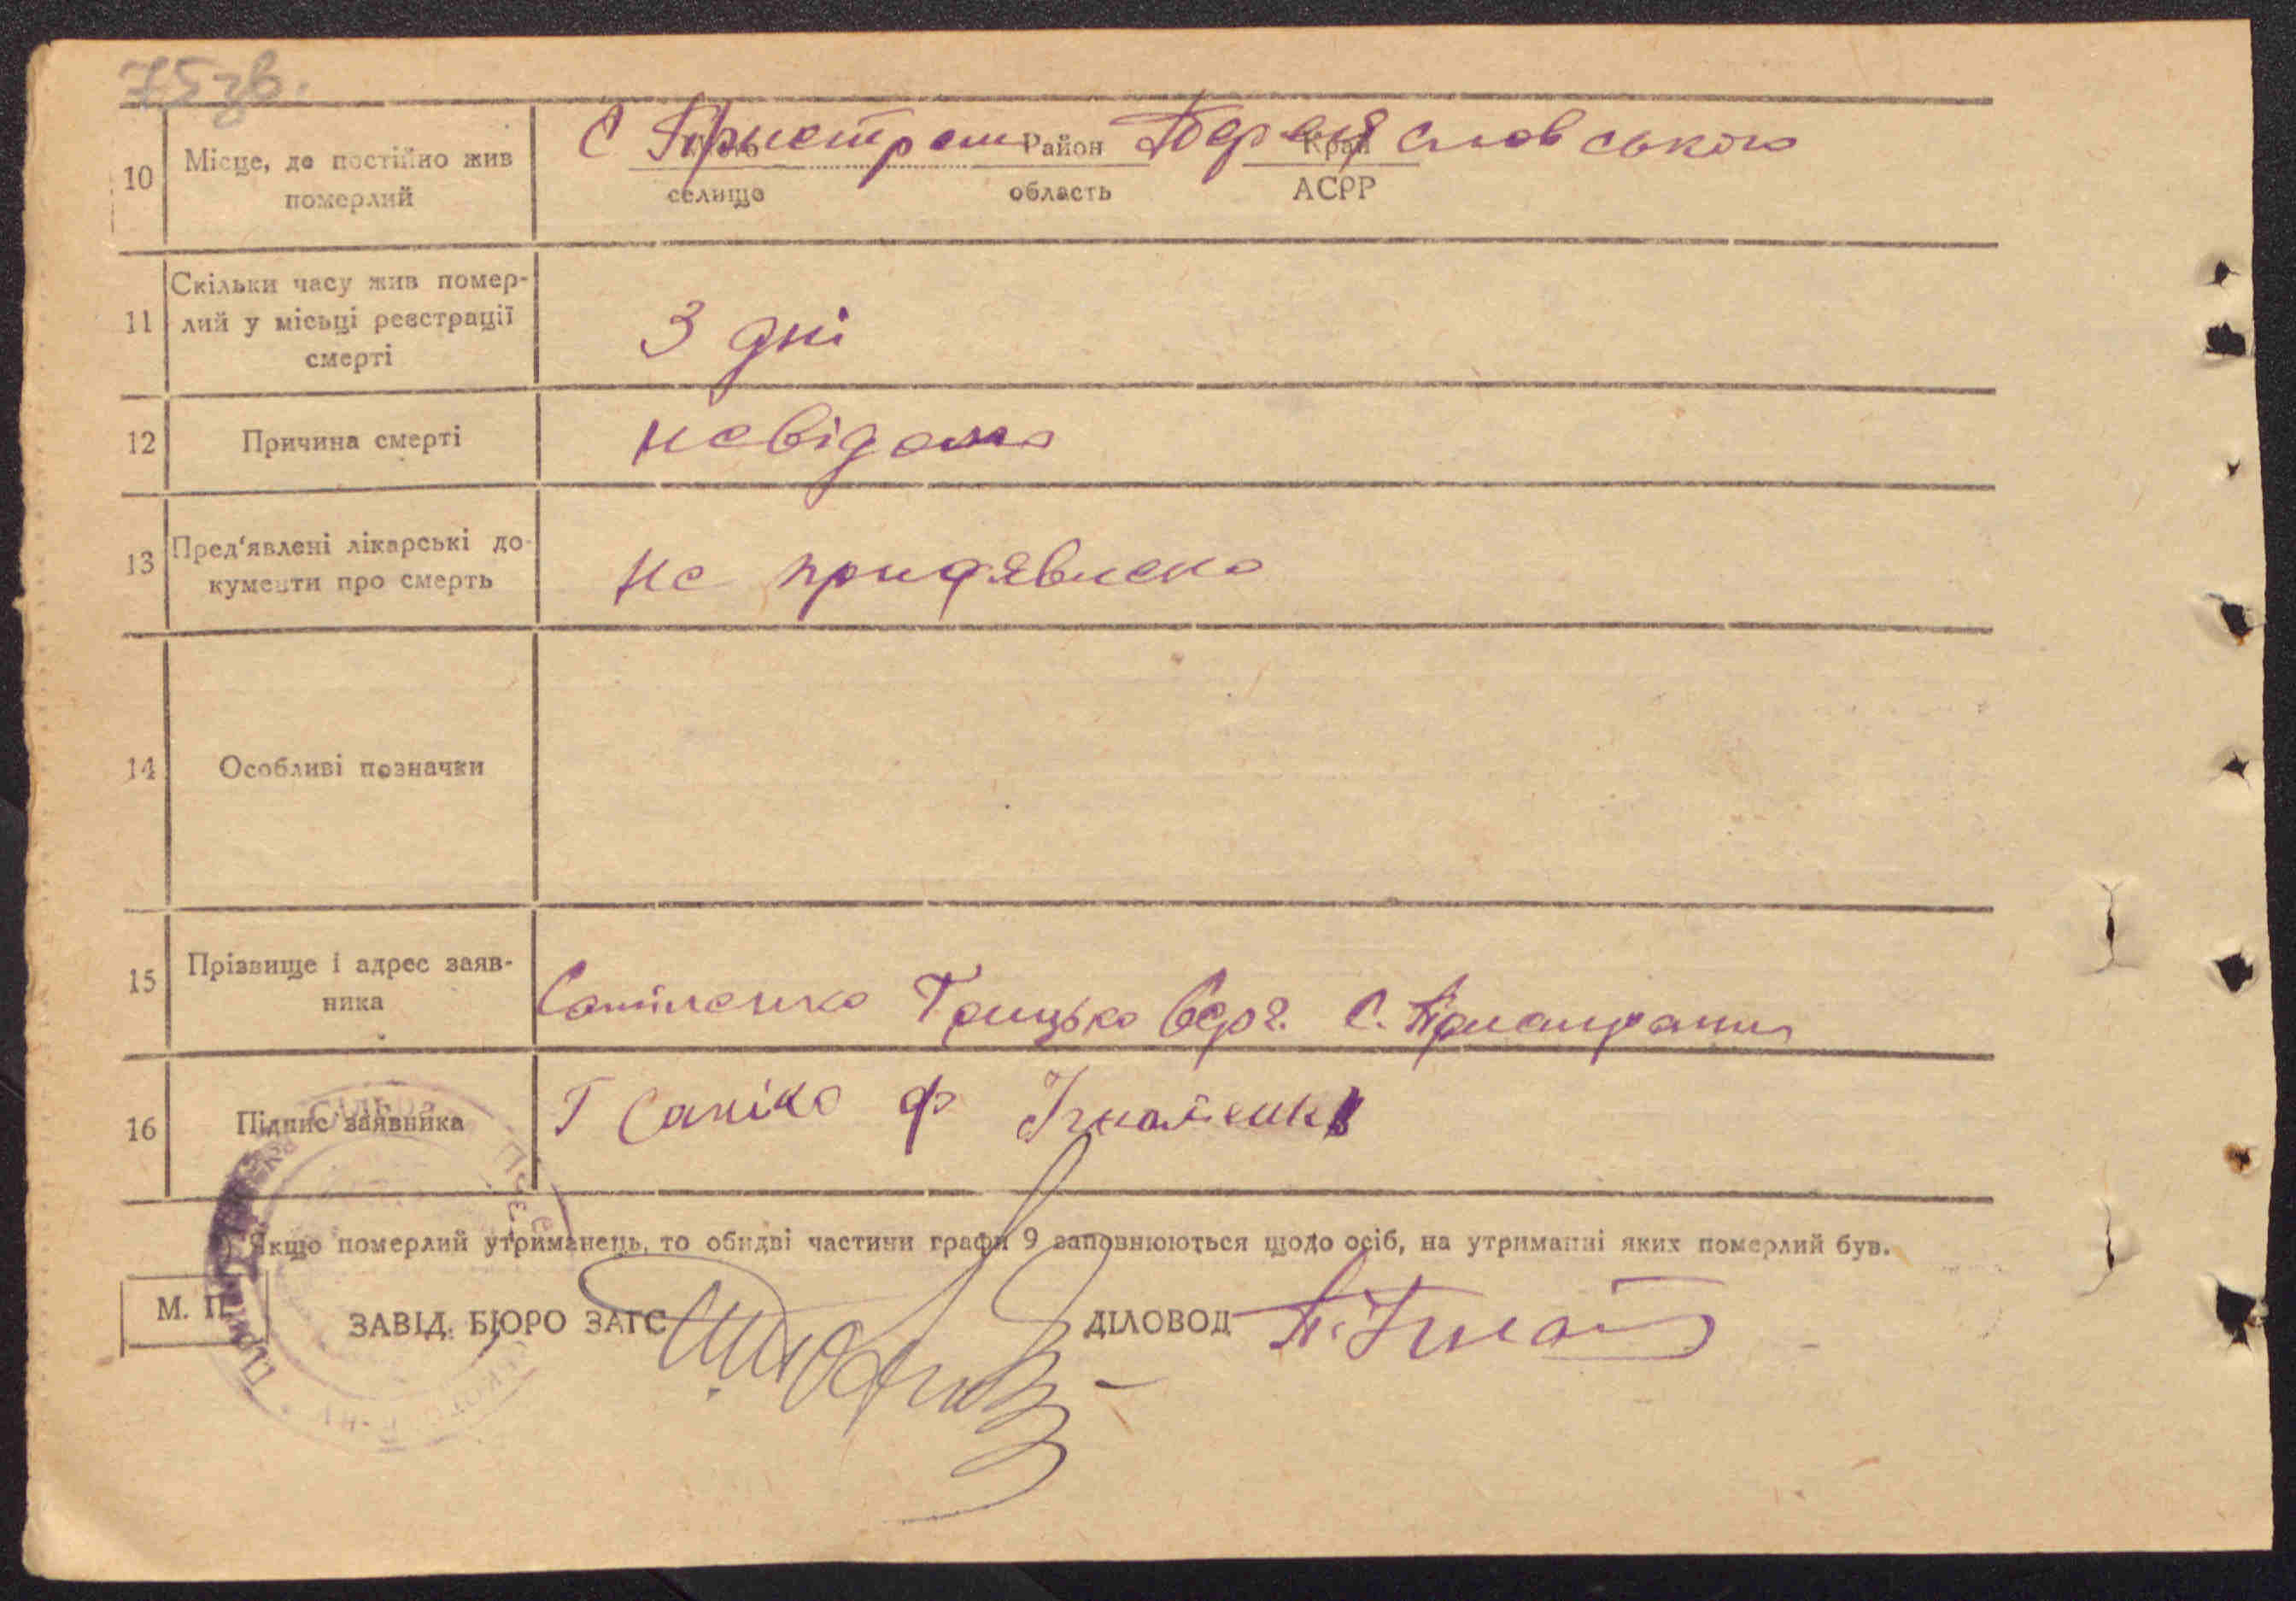 75 зв.
10 Місце, де постійно жив померлий
С Пристроми Район Переяславського
Місто Край
селище область АСРР
11 Скільки часу жив помер-
лий у місьці реєстрації
смерті
3 дні
12 Причина смерті невідома
13 Пред'явлені лікарські до-
кументи про смерть
не придявлено
14 Особливі позначки
15 Прізвище і адрес заяв-
ника
Грицько С. Пристроми
16 Підпис заявника
Г
Якщо померлий утриманець, то обидві частини графи 9 заповнюються щодо осіб, на утриманні яких померлий був.
М. П. ЗАВІД. БЮРО ЗАГС ДІЛОВОД